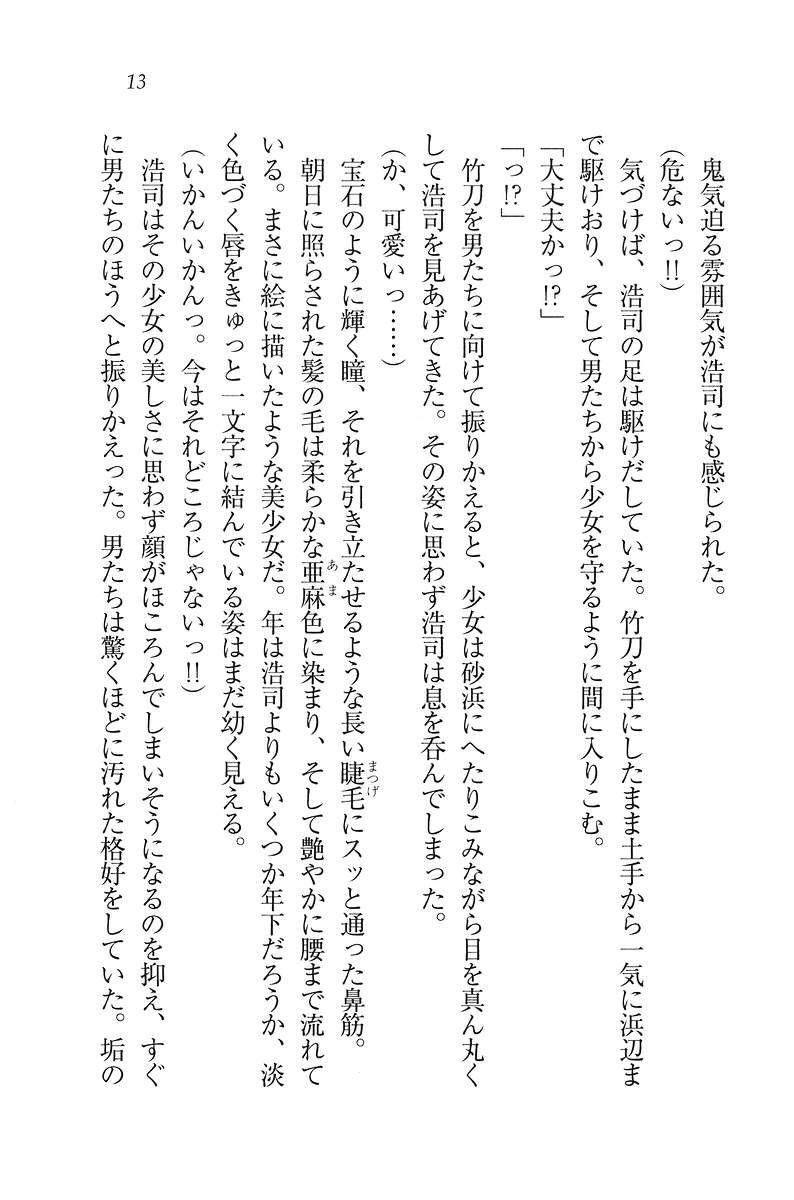 13
鬼気迫る雰囲気が浩司にも感じられた。
(危ないっ!!)
気づけば、浩司の足は駆けだしていた。竹刀を手にしたまま土手から一気に浜辺ま
で駆けおり、そして男たちから少女を守るように間に入りこむ。
「大丈夫かっ!?」
「っ!?」
竹刀を男たちに向けて振りかえると、少女は砂浜にへたりこみながら目を真ん丸く
して浩司を見あげてきた。その姿に思わず浩司は息を呑んでしまった。
(か、可愛いっ……)
宝石のように輝く瞳、それを引き立たせるような長い睫毛にスッと通った鼻筋。
朝日に照らされた髪の毛は柔らかな亜麻色に染まり、そして艶やかに腰まで流れて
いる。まさに絵に描いたような美少女だ。年は浩司よりもいくつか年下だろうか、淡
く色づく唇をきゅっと一文字に結んでいる姿はまだ幼く見える。
(いかんいかんっ。今はそれどころじゃないっ!!)
浩司はその少女の美しさに思わず顔がほころんでしまいそうになるのを抑え、すぐ
に男たちのほうへと振りかえった。男たちは驚くほどに汚れた格好をしていた。垢の